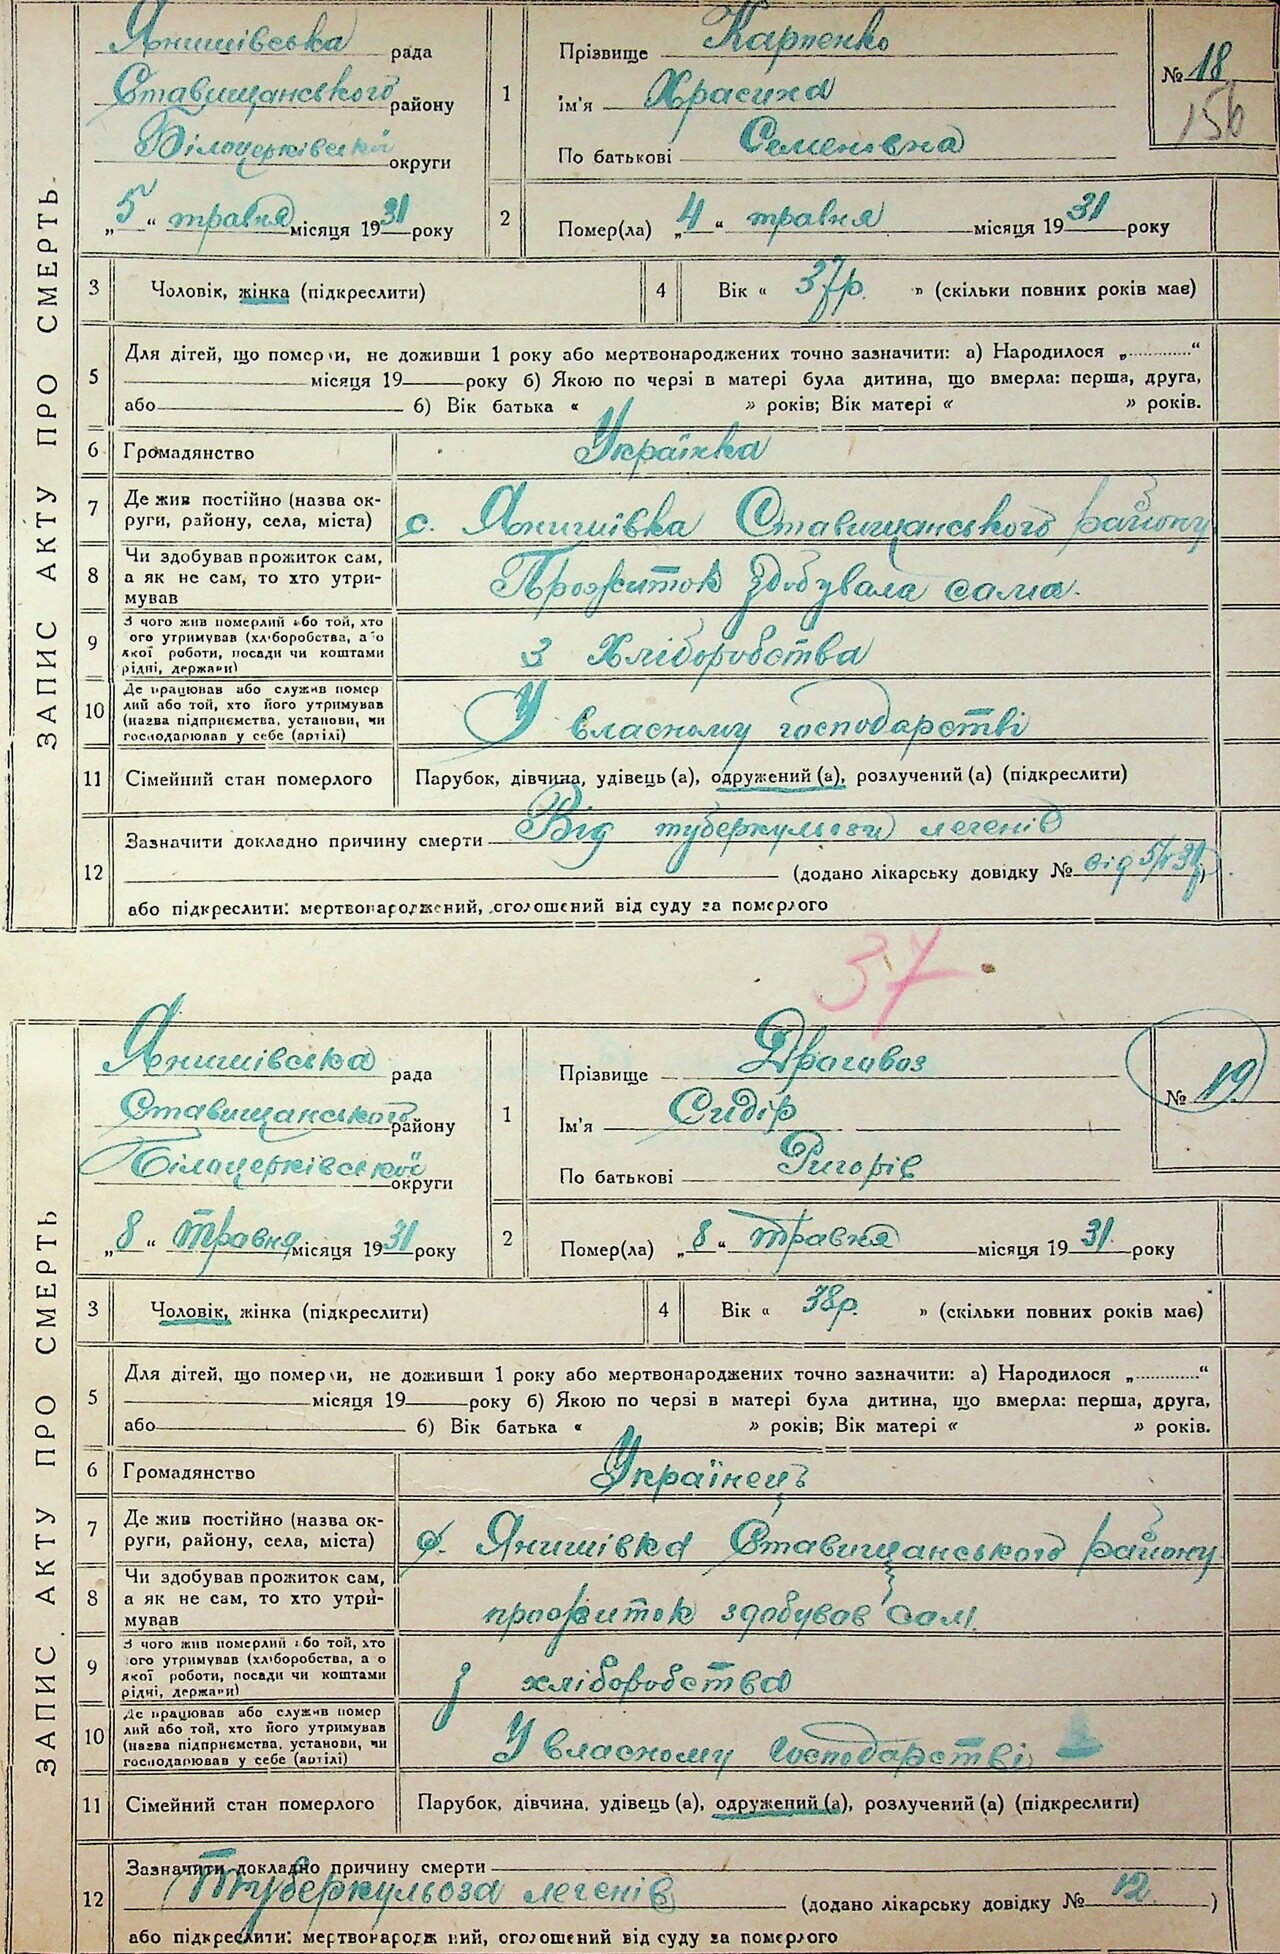 ЗАПИС АКТУ ПРО СМЕРТЬ
Янишівська рада
Ставищанського району
Білоцерківської округи
„5“ травня місяця 1931 року
1
Прізвище Карпенко
Ім'я Храсина
По батькові Семенівна
№ 18
156
2
Помер(ла) „4“ травня місяця 1931 року
3 Чоловік, жінка (підкреслити)
4 Вік « 37р. » (скільки повних років має)
5 Для дітей, що померли, не доживши 1 року або мертвонароджених точно зазначити: а) Народилося „..........“
місяця 19 року б) Якою по черзі в матері була дитина, що вмерла: перша, друга,
або б) Вік батька « » років; Вік матері « » років.
6 Громадянство Українка
7 Де жив постійно (назва ок-
руги, району, села, міста) с. Янишівка Ставищанського району
8 Чи здобував прожиток сам,
а як не сам, то хто утри-
мував Прожиток здобувала сама.
9 З чого жив померлий або той, хто
його утримував (хліборобства, або
якої роботи, посади чи коштами
рідні, держави) З Хліборобства
10 Де працював або служив помер
лий або той, хто його утримував
(назва підприємства, установи, чи
господарював у себе (артілі) У власному господарстві
11 Сімейний стан померлого Парубок, дівчина, удівець (а), одружений (а), розлучений (а) (підкреслити)
12 Зазначити докладно причину смерти Від туберкульози легенів
(додано лікарську довідку № від 5/V 31р)
або підкреслити: мертвонароджений, оголошений від суду за померлого
37
ЗАПИС АКТУ ПРО СМЕРТЬ
Янишівська рада
Ставищанського району
Білоцерківської округи
„8“ Травня місяця 1931 року
1
Прізвище Драговоз
Ім'я Сидір
По батькові Ригорів
№ 19.
2
Помер(ла) „8“ травня місяця 1931. року
3 Чоловік, жінка (підкреслити)
4 Вік « 38р. » (скільки повних років має)
5 Для дітей, що померли, не доживши 1 року або мертвонароджених точно зазначити: а) Народилося „..........“
місяця 19 року б) Якою по черзі в матері була дитина, що вмерла: перша, друга,
або б) Вік батька « » років; Вік матері « » років.
6 Громадянство Українець
7 Де жив постійно (назва ок-
руги, району, села, міста) с. Янишівка Ставищанського району
8 Чи здобував прожиток сам,
а як не сам, то хто утри-
мував прожиток здобував сам.
9 З чого жив померлий або той, хто
його утримував (хліборобства, а о
якої роботи, посади чи коштами
рідні, держави) З хліборобства
10 Де працював або служив помер
лий або той, хто його утримував
(назва підприємства, установи, чи
господарював у себе (артілі) У власному господарстві
11 Сімейний стан померлого Парубок, дівчина, удівець (а), одружений (а), розлучений (а) (підкреслити)
12 Зазначити докладно причину смерти
Туберкульоза легенів (додано лікарську довідку № 12. )
або підкреслити: мертвонародж ний, оголошений від суду за померлого